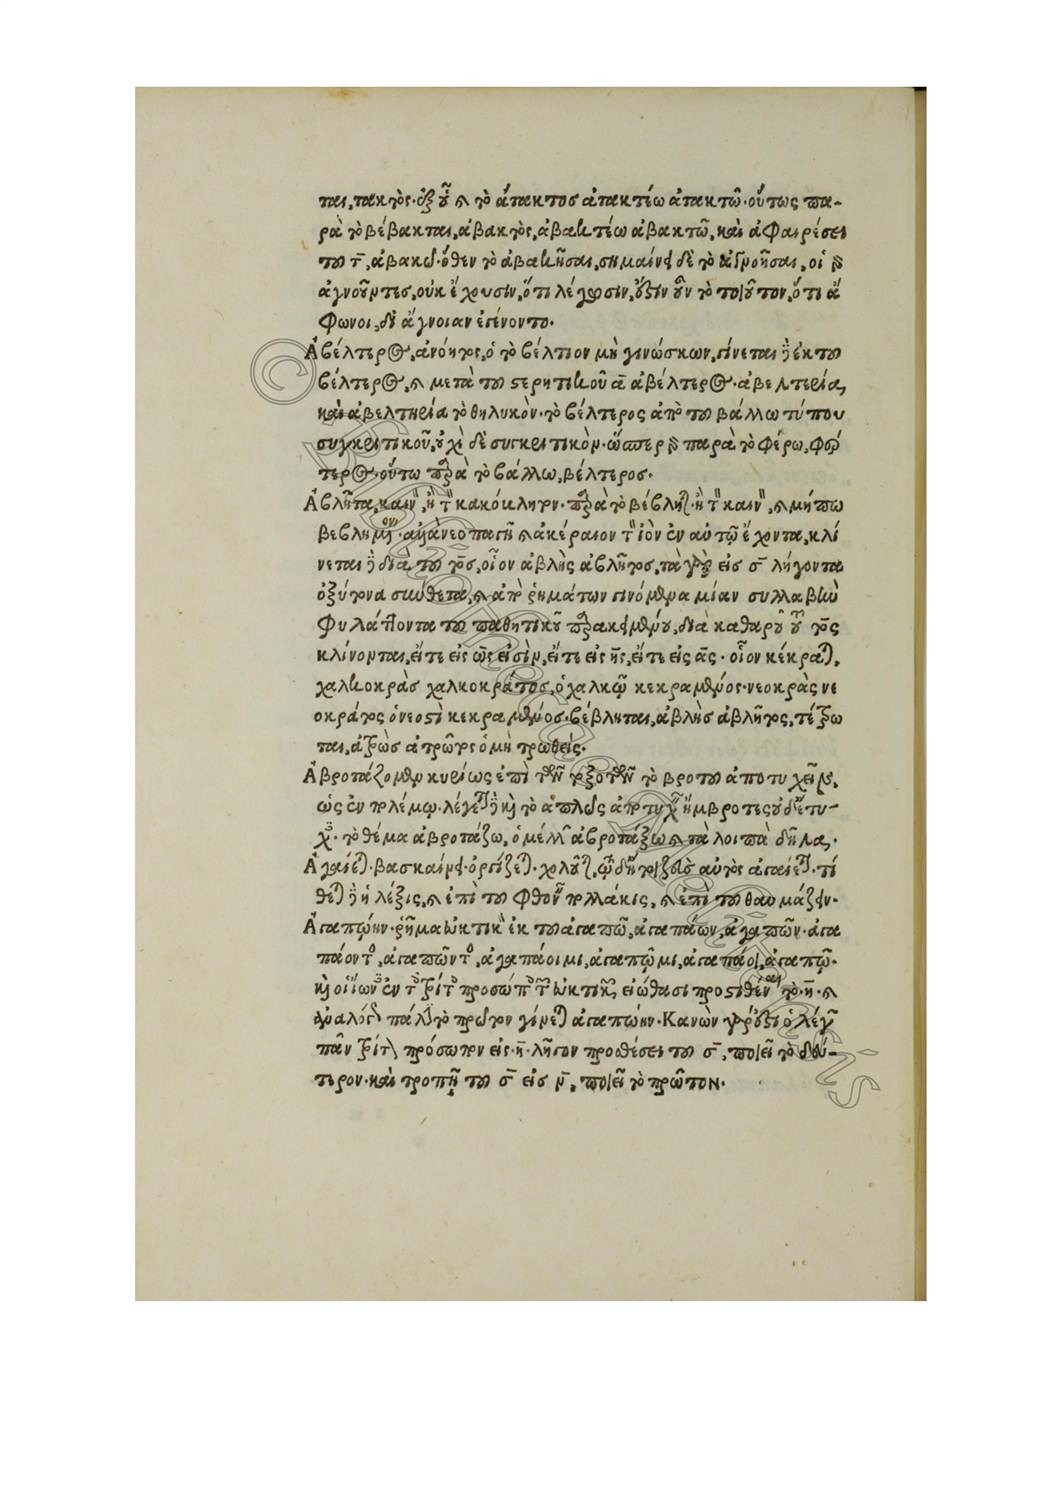 ται, τακτὸς· ἐξ οὗ καὶ τὸ ἄτακτος ἀτακτέω ἀτακτῶ· οὕτως πα-
ρὰ τὸ βέβακται, ἀβακτὸς, ἀβακτέω ἀβακτῶ, καὶ ἀφαιρέσει
του τ̄, ἀβακῶ· ὅθεν τὸ ἀβακῆσαι, σημαίνει δὲ τὸ ἀγνοῆσαι, οἱ γὰρ
ἀγνοοῦντες, οὐκ ἔχουσιν, ὅτι λέγωσιν, ἔστιν οὖν τὸ τοιοῦτον, ὅτι ἄ
φωνοι, δι' ἄγνοιαν ἐγένοντο.
Ἀβέλτερος, ἀνόητος, ὁ τὸ βέλτιον μὴ γινώσκων, γίνεται δὲ ἐκ του
βέλτερος, καὶ μετὰ του στερητικοῦ ᾱ ἀβέλτερος· ἀβελτερία,
καὶ ἀβελτηρία τὸ θηλυκὸν· τὸ βέλτερος ἀπὸ του βάλλω τύπου
συγκριτικοῦ, οὐχὶ δὲ συγκριτικὸν· ὥσπερ γὰρ παρὰ τὸ φέρω, φέρ
τερος, οὕτω παρὰ τὸ βάλλω, βέλτερος.
Ἀβλῆτα, καινὴν, ἢ τὴν κακόκληρον· παρὰ τὸ βέβληται· ἢ τὴν καινὴν, καὶ μήπω
βεβλημένον· ἀλλὰ νεοπαγῆ καὶ ἀκέραιον τὸν ἰὸν ἐν αὐτῷ ἔχοντα, κλί
νεται δὲ διὰ του τος, οἷον ἀβλὴς ἀβλῆτος, τὰ γὰρ εἰς σ̄ λήγοντα
ὀξύτονα σύνθετα, καὶ ἀπὸ ῥημάτων γινόμενα μίαν συλλαβὴν
φυλάττοντα του παθητικοῦ παρακειμένου, διὰ καθαροῦ τοῦ τος
κλίνονται, εἴτε εἰς ως εἰσὶν, εἴτε εἰς ης, εἴτε εἰς ας· οἷον κέκραται,
χαλκοκρὰς χαλκοκράτος, ὁ χαλκῷ κεκραμένος· νεοκρὰς νε
οκράτος ὁ νεοστὶ κεκραμένος· βέβληται, ἀβλὴς ἀβλῆτος, τέτρω
ται, ἀτρὼς ἀτρῶτος ὁ μὴ τρωθείς.
Ἀβροτάξομεν κυρίως ἐπὶ τῶν τοξοτῶν τὸ βροτου ἀποτυχεῖν,
ὡς ἐν πολέμῳ· λέγεται δὲ καὶ τὸ ἁπλῶς ἀποτυχεῖν ἤμβροτες οὐδ' ἔτυ-
χες· τὸ θέμα ἀβροτάζω, ὁ μέλλων ἀβροτάξω καὶ τὰ λοιπὰ δῆλα.
Ἀγαίεται· βασκαίνει· ὀργίζεται· χολοῦται, αὐτὸς ἀγαίεται· τί
θεται δὲ ἡ λέξις, καὶ ἐπὶ του φθονεῖν πολλάκις, καὶ ἐπὶ του θαυμάζειν.
Ἀγαπῴην· ῥῆμα εὐκτικὸν ἐκ του ἀγαπῶ, ἀγαπάων, ἀγαπῶν· ἀγα
πάοντος, ἀγαπῶντος, ἀγαπάοιμι, ἀγαπῷμι, ἀγαπάοι, ἀγαπῷ·
καὶ οἱ Ἴωνες ἐν τῷ τρίτῳ προσώπῳ τῶν εὐκτικῶν εἰώθασι προστιθέναι τὸ η̄· καὶ
πάλιν τὸ πρῶτον γίνεται ἀγαπῴην· Κανὼν γάρ ἐστι ὁ λέγων
πᾶν τρίτον πρόσωπον εἰς η̄ λῆγον προσθέσει του σ̄, ποιεῖ τὸ δεύ-
τερον· καὶ τροπῇ του σ̄ εἰς ν̄, ποιεῖ τὸ πρῶτον.